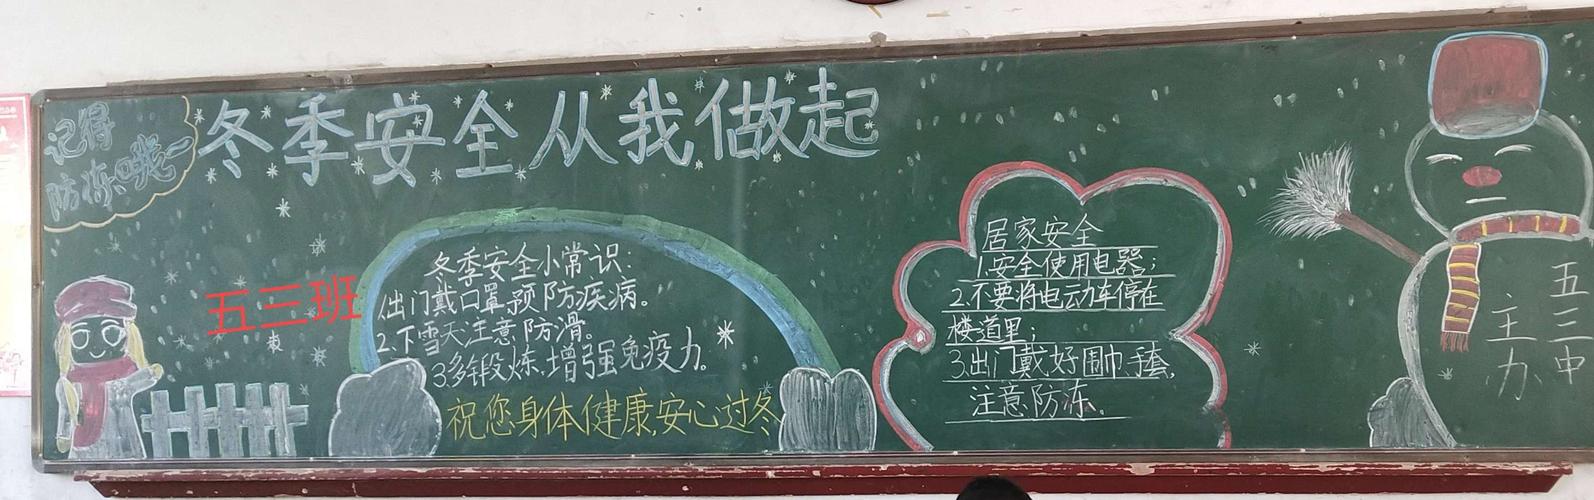 记得
防冻哦~
冬季安全从我做起
五三班
冬季安全小常识:
1.出门戴口罩,预防疾病。
2.下雪天注意防滑。
3.多锻炼,增强免疫力。
祝您身体健康,安心过冬
居家安全
1.安全使用电器;
2.不要将电动车停在
楼道里;
3.出门戴好围巾,手套,
注意防冻。
五三中
主力